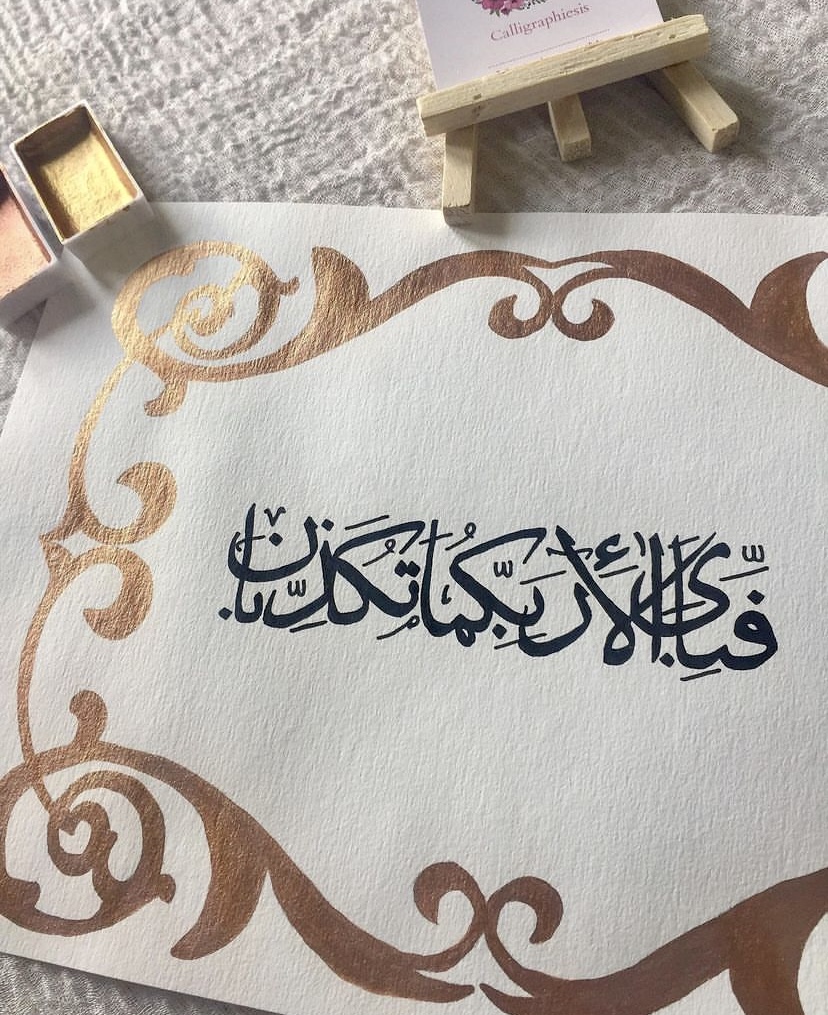 Calligraphiesis
فبأى الأ ربكما تكذبان